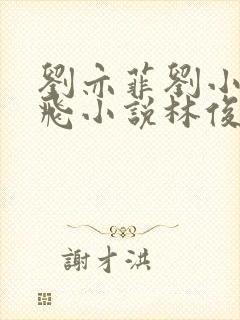 劉亦菲劉小
飛小說林俊
謝才洪